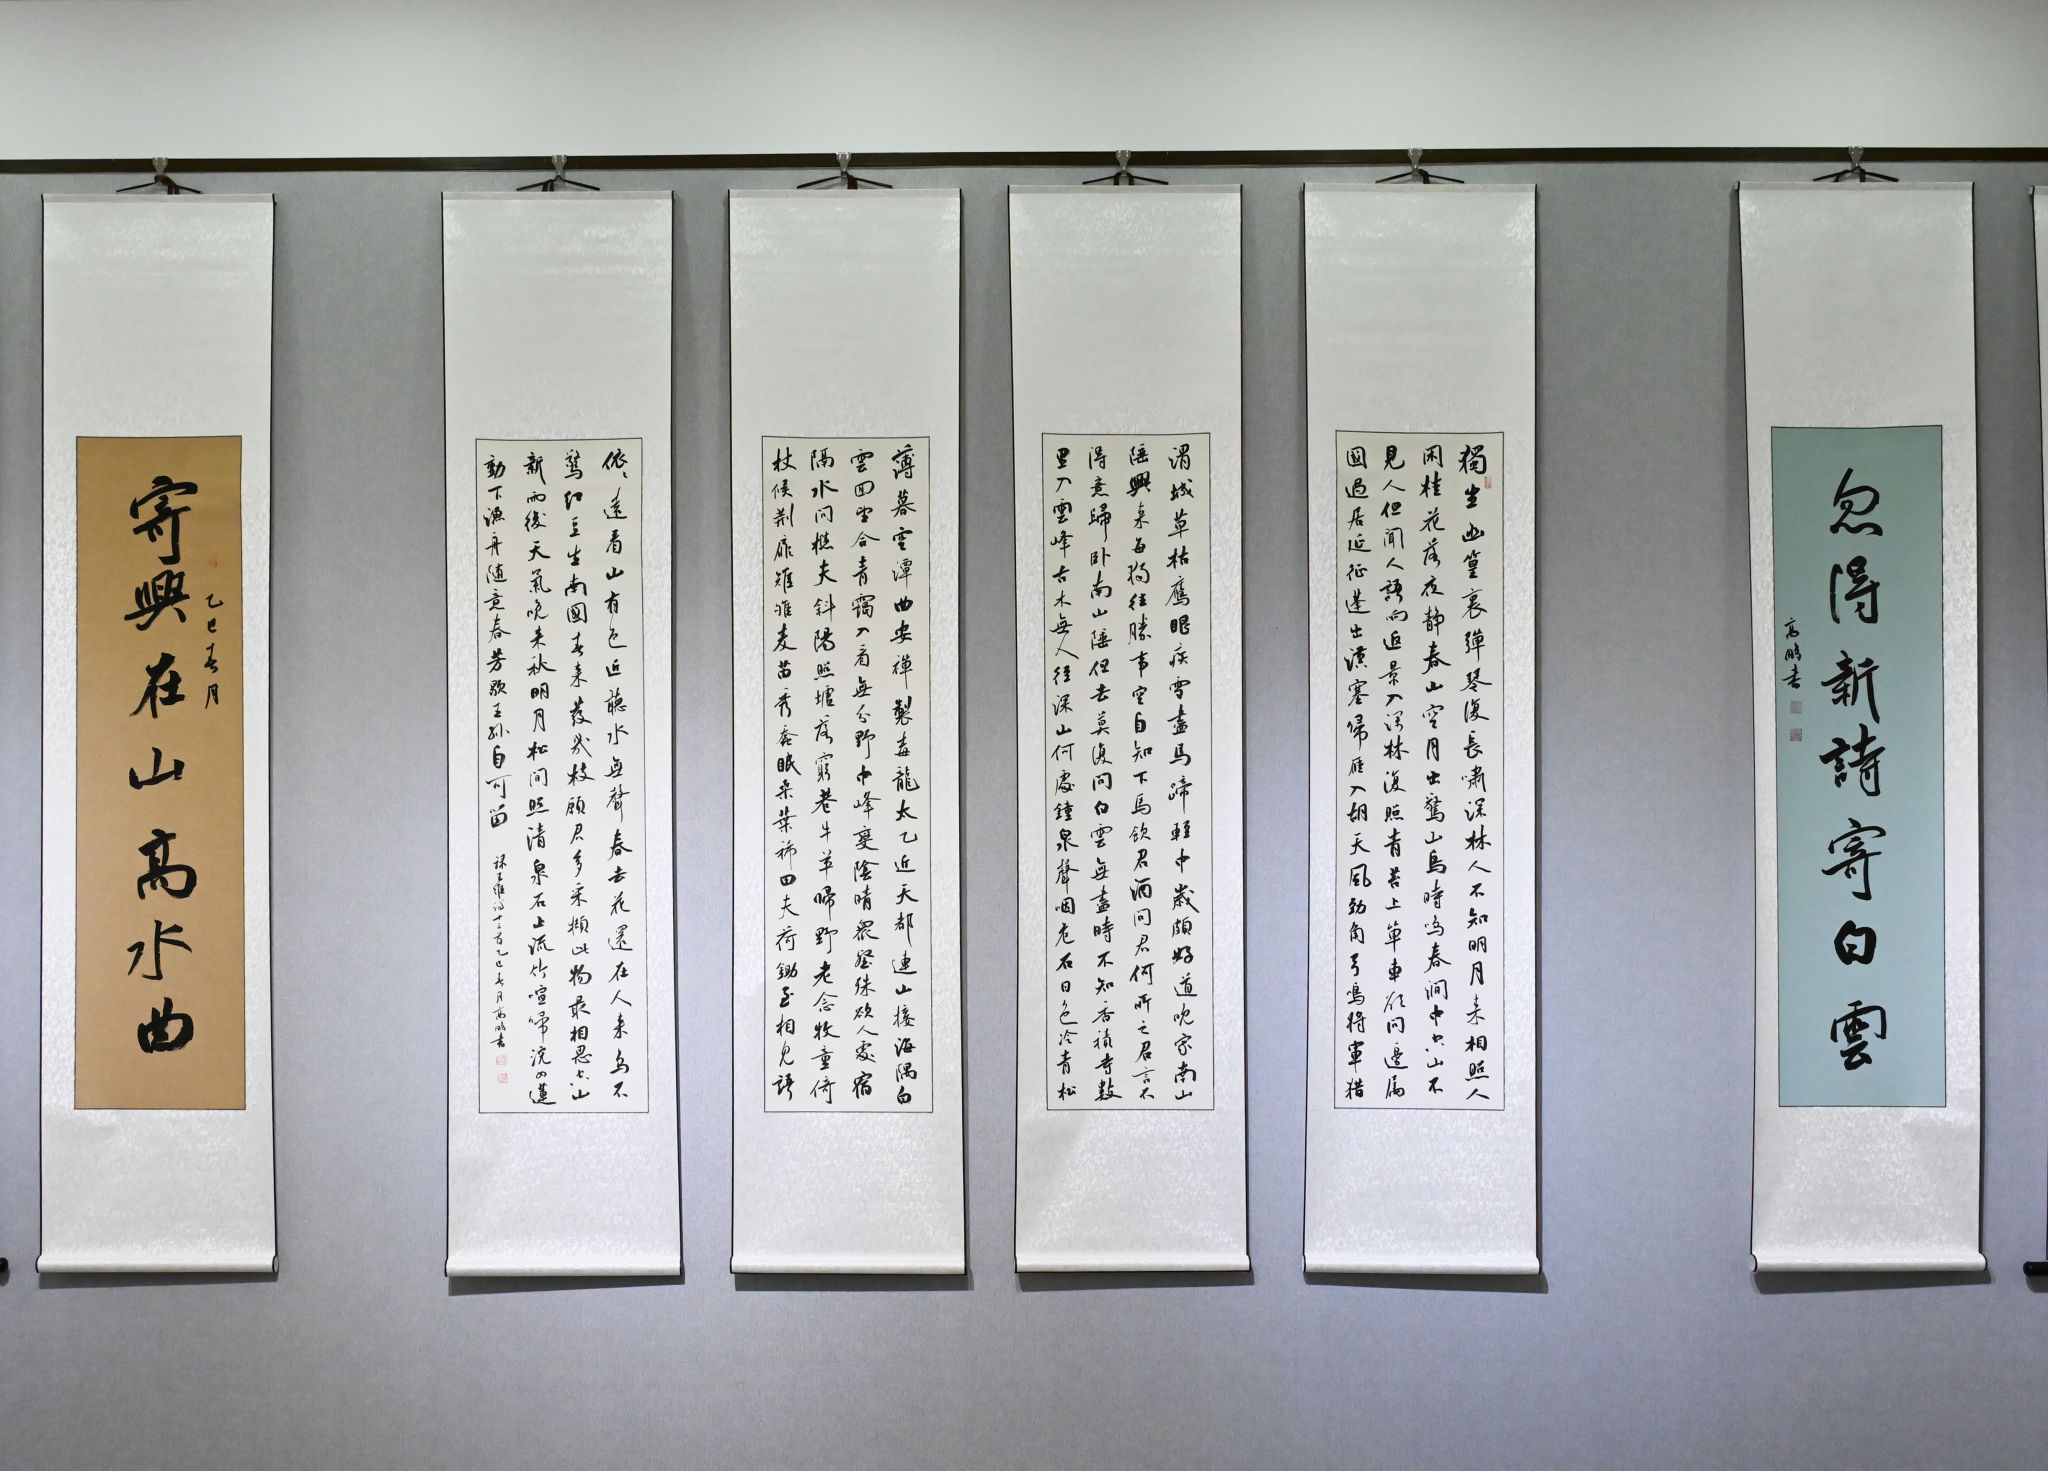 忽得新詩寄白雲
高鵬書
獨坐幽篁裏彈琴復長嘯深林人不知明月来相照人
闲桂花落夜静春山空月出驚山鳥時鸣春澗中空山不
見人但聞人語向返景入深林復照青苔上单車欲问邊屬
國過居延征蓬出漢塞帰雁入胡天風劲角弓鳴将軍猎
渭城草枯鷹眼疾雪盡馬蹄輕中歲頗好道晚家南山
陲興来每獨往勝事空自知下馬飲君酒问君何所之君言不
得意歸卧南山陲但去莫復问白雲無盡時不知香積寺數
里入雲峰古木無人徑深山何處鐘泉聲咽危石日色冷青松
薄暮空潭曲安禪製毒龍太乙近天都連山接海隅白
雲回望合青靄入看無分野中峰變陰晴衆壑殊欲人處宿
隔水问樵夫斜陽照墟落窮巷牛羊帰野老念牧童倚
杖候荆扉雉雊麦苗秀蚕眠桑葉稀田夫荷鋤至相見語
依〻遠看山有色近聽水無聲春去花還在人来鸟不
驚红豆生南國春来發幾枝願君多采擷此物最相思空山
新雨後天氣晚来秋明月松间照清泉石上流竹喧帰浣女蓮
動下漁舟随意春芳歇王孫自可留
録王維詩十三首乙巳春月高鵬書
乙巳春月
寄興在山高水曲